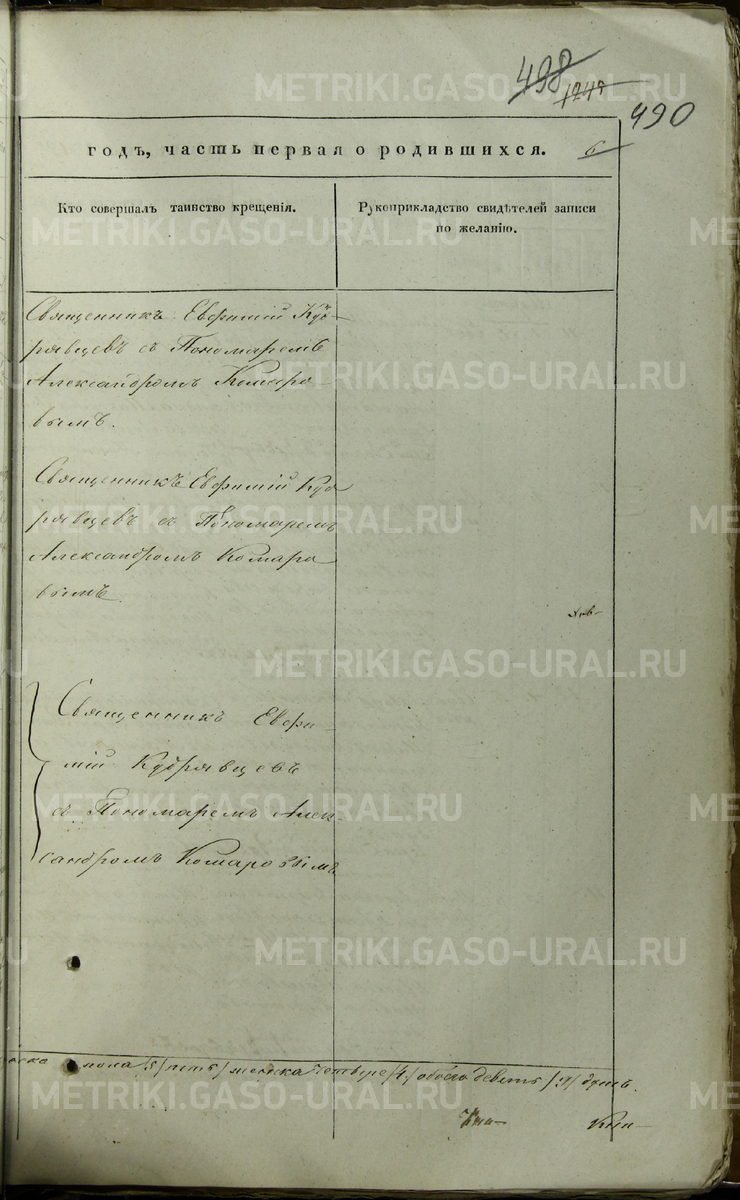 498
1249
490
годъ, часть первая о родившихся. 6
Кто совершалъ таинство крещенія.
Рукоприкладство свидѣтелей записи
по желанію.
Священникъ Евфимій Куд-
рявцевъ съ Пономаремъ
Александромъ Комаро-
вымъ.
Священникъ Евфимій Куд
рявцевъ съ Пономаремъ
Александромъ Комаро
вымъ
Священникъ Евфи-
мій Кудрявцевъ
съ Пономаремъ Алек-
сандромъ Комаровымъ
пола /5/ пять / женска четыре /4/ обоего девять /9/ душъ.
METRIKI.GASO-URAL.RU